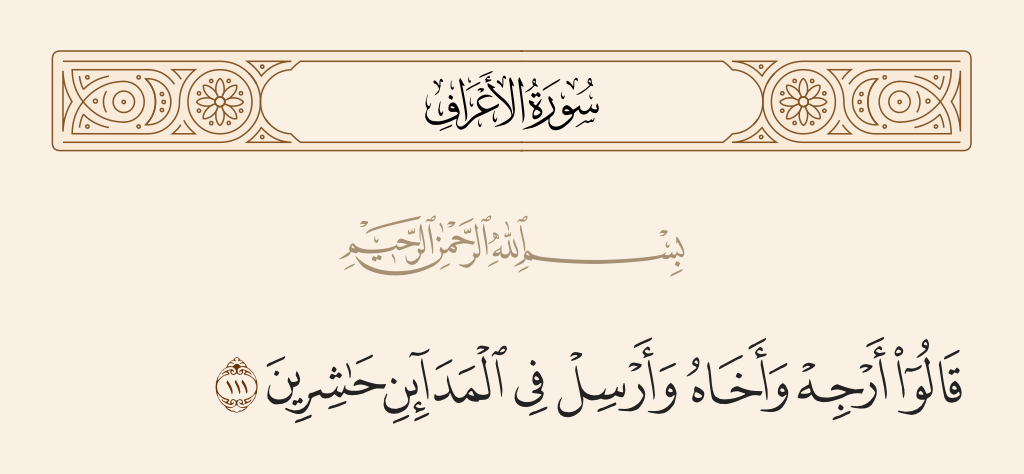 سُورَةُ الأَعْرَافِ
بِسْمِ ٱللَّهِ ٱلرَّحْمَٰنِ ٱلرَّحِيمِ
قَالُوٓا۟ أَرْجِهْ وَأَخَاهُ وَأَرْسِلْ فِى ٱلْمَدَآئِنِ حَٰشِرِينَ ١١١